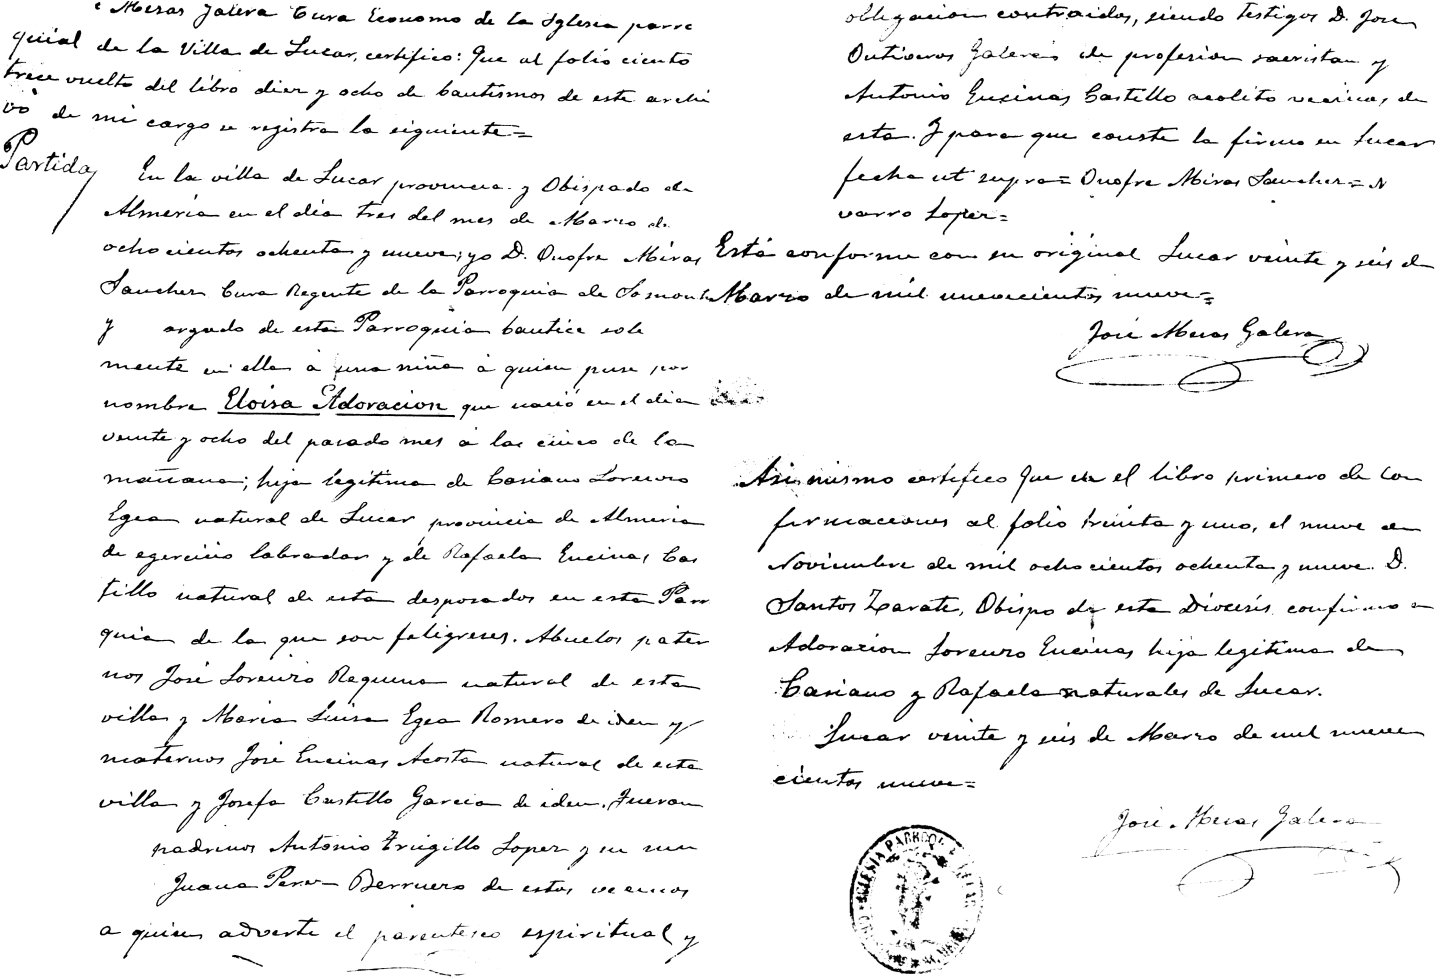 Meras Galera Cura Economo de la Iglesia parro
quial de la Villa de Lucar, certifico: Que al folio ciento
trece vuelto del libro diez y ocho de bautismos de este archi
vo de mi cargo se registra la siguiente=
Partida
En la villa de Lucar provincia y Obispado de
Almeria en el dia tres del mes de Marzo de
ochocientos ochenta y nueve; yo D. Onofre Miras
Sanchez Cura Regente de la Parroquia de Somont
y argado de esta Parroquia bautice sole
mente en ella á una niña á quien puse por
nombre Eloisa Adoracion que nació en el dia
veinte y ocho del pasado mes a las cinco de la
mañana; hija legitima de Casiano Lorenzo
Egea natural de Lucar provincia de Almeria
de egercicio labrador y de Rafaela Encinas Cas
tillo natural de esta desposados en esta Parr
quia de la que son feligreses. Abuelos pater
nos José Lorenzo Requena natural de esta
villa y Maria Luisa Egea Romero de iden y
maternos José Encinas Acosta natural de esta
villa y Josefa Castillo Garcia de iden. Fueron
padrinos Antonio Trugillo Lopez y su mu
Juana Perez Berruezo de estos vecinos
a quien advertí el parentesco espiritual y
obligacion contraidos, siendo testigos D. Jose
Ontiveros Galera de profesion sacristan y
Antonio Encinas Castillo acolito vecinos de
esta. Y para que conste la firmo en Lucar
fecha ut supra= Onofre Miras Sanchez= N
varro Lopez=
Está conforme con su original Lucar veinte y seis de
Marzo de mil nuevecientos nueve=
José Meras Galera
Asi mismo certifico que en el libro primero de con
firmaciones al folio treinta y uno, el nueve de
Noviembre de mil ochocientos ochenta y nueve. D.
Santos Zarate, Obispo de esta Diocesis confirmo a
Adoracion Lorenzo Encinas hija legitima de
Casiano y Rafaela naturales de Lucar.
Lucar veinte y seis de Marzo de mil nueve
cientos nueve=
José Meras Galera
IGLESIA PARROQL